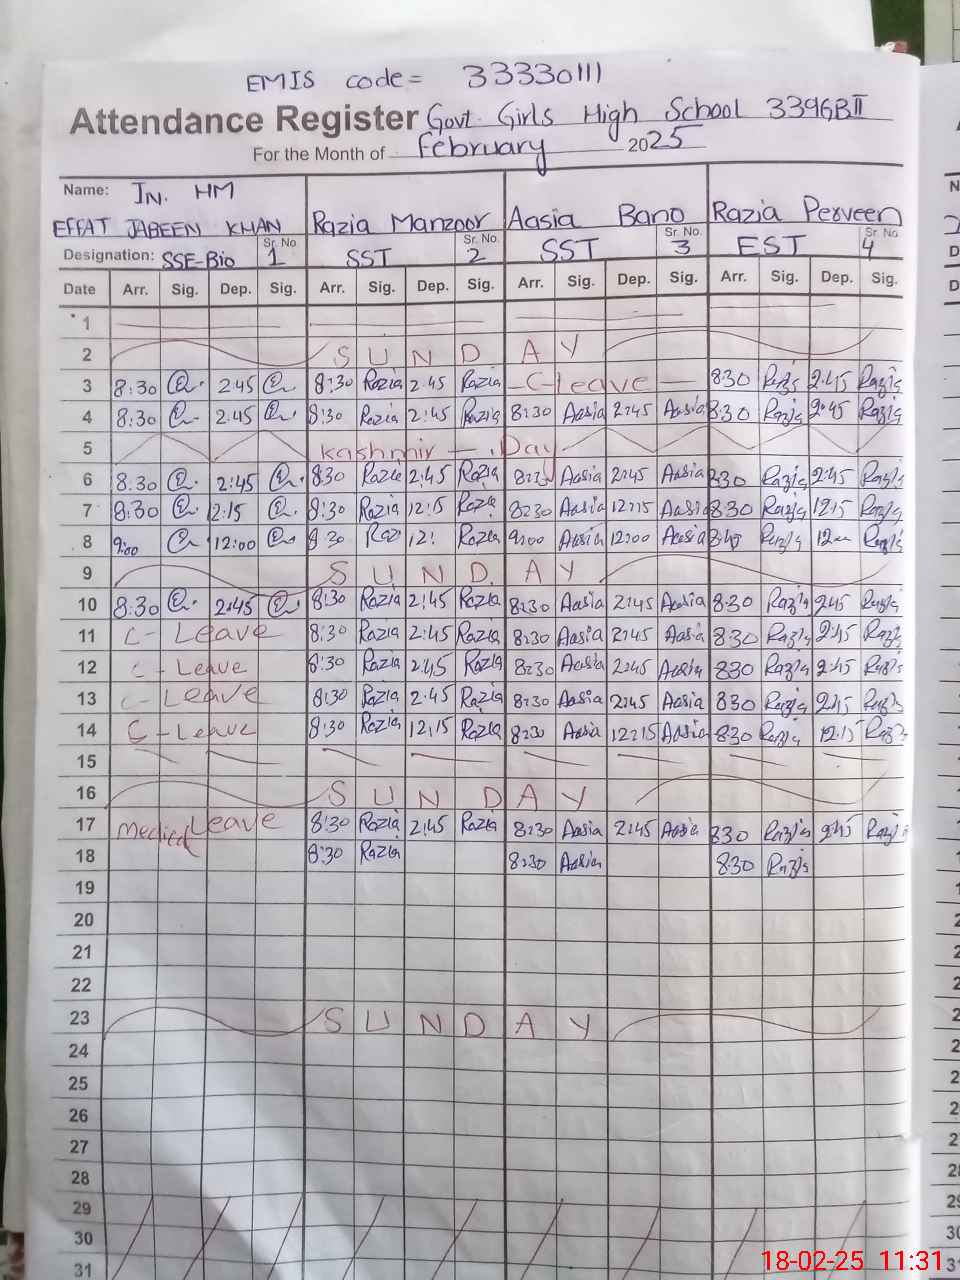 EMIS code= 33330111
Attendance Register Govt. Girls High School 339GBII
For the Month of February 2025
Name: IN. HM
EFFAT JABEEN KHAN Razia Manzoor Aasia Bano Razia Perveen
Sr. No. Sr. No. Sr. No. Sr. No.
Designation: SSE-Bio 1 SST 2 SST 3 EST 4
Date Arr. Sig. Dep. Sig. Arr. Sig. Dep. Sig. Arr. Sig. Dep. Sig. Arr. Sig. Dep. Sig.
1
2 SUNDAY
3 8:30 2:45 8:30 Razia 2:45 Razia -C-Leave- 8:30 2:45
4 8:30 2:45 8:30 Razia 2:45 Razia 8:30 Aasia 2:45 Aasia 8:30 2:45
5 Kashmir - Day
6 8:30 2:45 8:30 Razia 2:45 Razia 8:30 Aasia 2:45 Aasia 8:30 2:45
7 8:30 12:15 8:30 Razia 12:15 Razia 8:30 Aasia 12:15 Aasia 8:30 12:15
8 9:00 12:00 8:30 Razia 9:00 Aasia 12:00 Aasia
9 SUNDAY
10 8:30 2:45 8:30 Razia 2:45 Razia 8:30 Aasia 2:45 Aasia 8:30 2:45
11 C-Leave 8:30 Razia 2:45 Razia 8:30 Aasia 2:45 Aasia 8:30 2:45
12 C-Leave 8:30 Razia 2:45 Razia 8:30 Aasia 2:45 Aasia 8:30 2:45
13 C-Leave 8:30 Razia 2:45 Razia 8:30 Aasia 2:45 Aasia 8:30 2:45
14 C-Leave 8:30 Razia 12:15 Razia 8:30 Aasia 12:15 Aasia 8:30 12:15
15
16 SUNDAY
17 Medical Leave 8:30 Razia 2:45 Razia 8:30 Aasia 2:45 Aasia 8:30 2:45
18 8:30 Razia 8:30 Aasia 8:30
19
20
21
22
23 SUNDAY
24
25
26
27
28
29
30
31
18-02-25 11:31